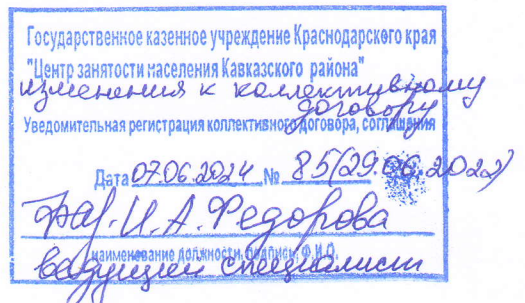 Государственное казенное учреждение Краснодарского края
"Центр занятости населения Кавказского района"
изменения к коллективному
договору
Уведомительная регистрация коллективного договора, соглашения
Дата 07.06.2024 № 85(29.06.2022)
И.А. Федорова
наименование должности, подпись, Ф.И.О.
ведущий специалист